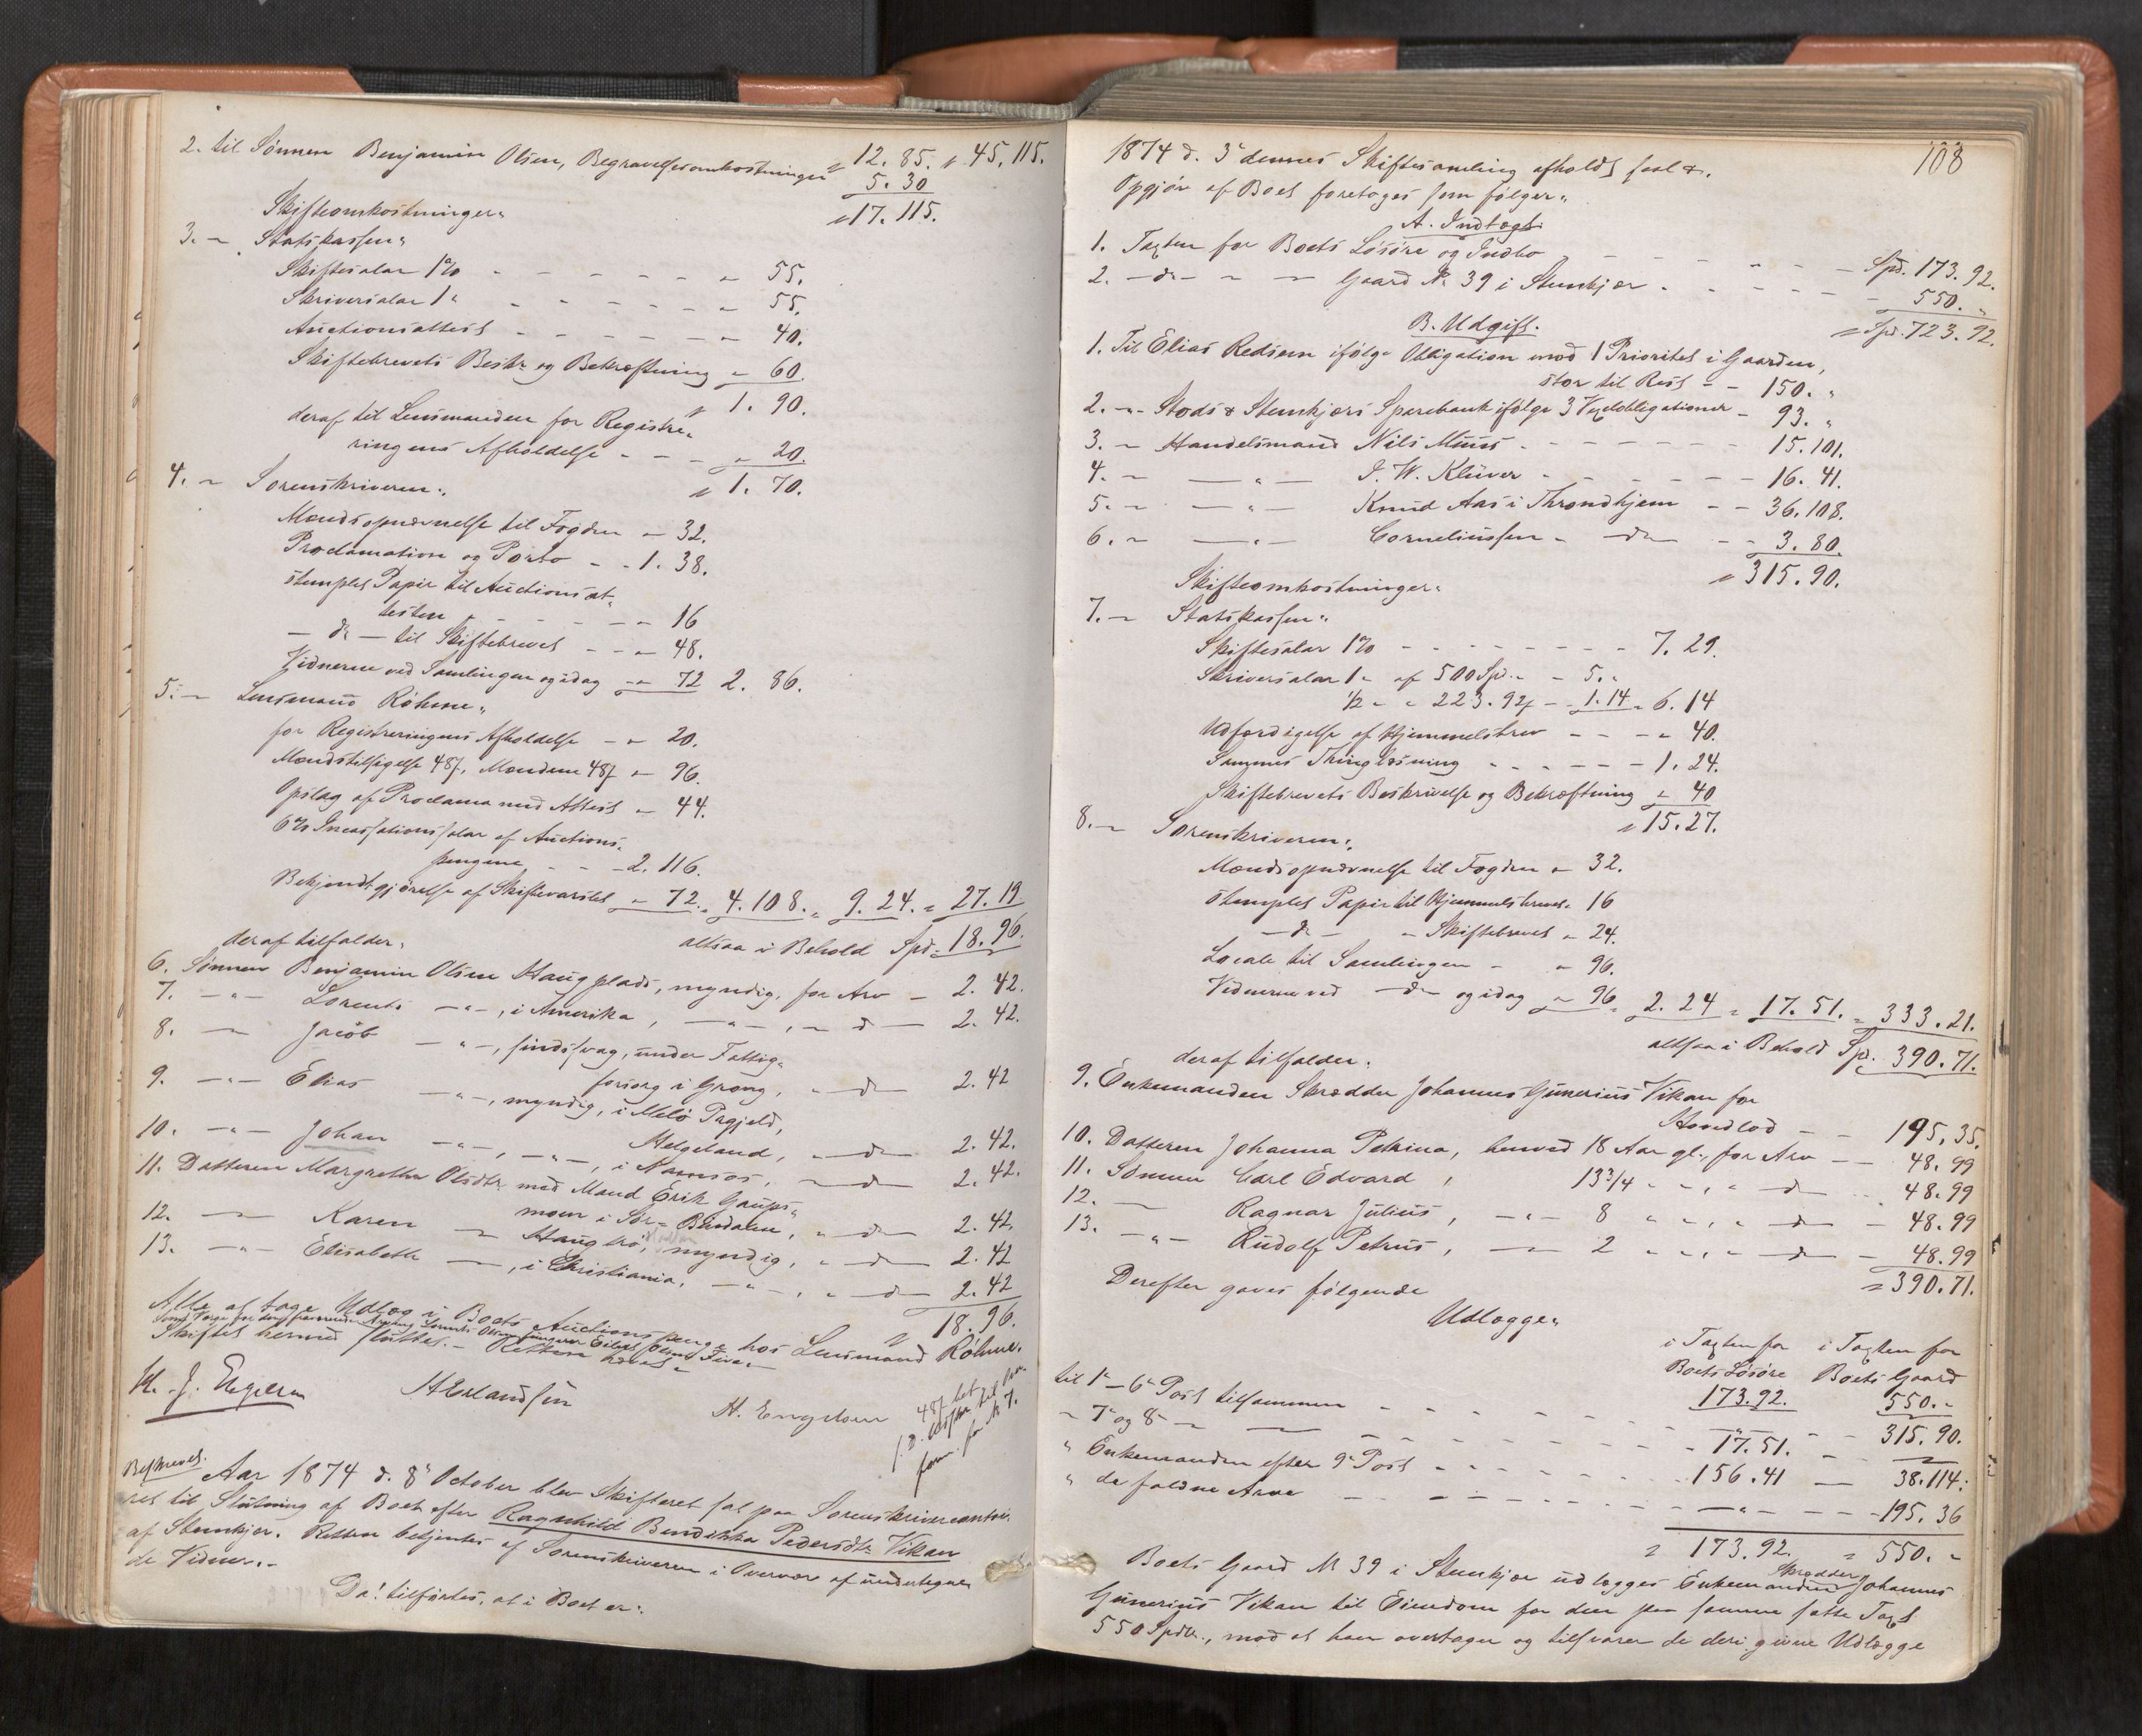 2. til Sønnen Benjamin Olsen, Begravelsesomkostninger " 12. 85. " 45. 115.
5. 30
Skifteomkostninger: " 17. 115.
3. " Statskassen:
Skiftesalar 1% - - - - - " 55.
Skriversalar 1 " - - - - - " 55.
Auctionsattest - - - - - " 40.
Skiftebrevets Beskr. og Bekræftning " 60.
" 1. 90.
deraf til Lensmanden for Registre-
ringens Afholdelse - - - " 20.
" 1. 70.
4. " Sorenskriveren:
Mændsopnævnelse til Fogden " 32.
Proclamation og Porto - - 1. 38.
stemplet Papir til Auctionsat-
testen - - - - " 16
— do — til Skiftebrevet - - " 48.
Vidnerne ved Samlingen og idag " 72 2. 86.
5. " Lensmand Röhme:
for Registreringens Afholdelse - " 20.
Mændstilsigelse 48ß, Mændene 48ß " 96.
Opslag af Proclama med Attest " 44.
6% Incassationssalar af Auctions-
pengene - - 2. 116.
Bekjendtgjørelse af Skiftevarslet " 72. " 4. 108. " 9. 24. " 27. 19
altsaa i Behold Spd. 18. 96.
deraf tilfalder:
6. Sønnen Benjamin Olsen Haugplads, myndig, for Arv - 2. 42.
7. — " — Lorents — " —, i Amerika, — " —, " do — 2. 42.
8. — Jacob — " —, sindssvag, under Fattig-
forsorg i Grong, " do 2. 42
9. — " — Elias — " —, myndig, i Melø Prgjeld,
Helgeland, " do 2. 42.
10. — " — Johan — " —, — " —, i Namsos, " do 2. 42.
11. Datteren Margrethe Olsdtr. med Mand Erik Gaups-
moen i Sør-Bindalen, " do 2. 42.
12. — Karen — Haugbø, myndig, " do 2. 42
13. — " — Elisabeth —, i Christiania, — " —, " do 2. 42
" 18. 96.
Alle at tage Udlæg i Boets Auctionspenge hos Lensmand Röhme.
Skiftet hermed sluttet. - Retten hævet.
H. J. Engelsen HErlandsen H. Engdom
Beskrevet.
Aar 1874 d. 8de October blev Skifteret sat paa Sorenskrivercontoi-
ret til Slutning af Boet efter Ragnhild Bendikka Pedersdtr. Vikan
af Stenkjer. Retten betjentes af Sorenskriveren i Overvær af undertegne-
de Vidner.-
Da! tilførtes, at i Boet er:
108
1874 d. 3de dennes Skiftesamling afholdt saal &.
Opgjør af Boet foretoges som følger:
A. Indtægt.
1. Taxten for Boets Løsøre og Indbo - - - - - Spd. 173. 92.
2. — do — " — Gaard No 39 i Stenkjær - - - - - 550. "
" Spd. 723. 92.
B. Udgift.
1. Til Elias Redsem ifølge Obligation med 1 Prioritet i Gaarden,
stor til Rest - - 150. "
2. " Stods & Stenkjers Sparebank ifølge 3 Vexelobligationer - 93. "
3. " Handelsmand Nils Muus - - - - - - 15. 101.
4. " — " — J. W. Klüver - - - - - 16. 41.
5. " — " — Knud Aas i Throndhjem - - 36. 108.
6. " — " — Corneliussen - do - - 3. 80.
" 315. 90.
Skifteomkostninger:
7. " Statskassen:
Skiftesalar 1% - - - - - - - 7. 29.
Skriversalar 1 " af 500 Spd. - - 5. "
½ " " 223. 92ß - - 1. 14. " 6. 14
Udfærdigelse af Hjemmelsbrev - - - " 40.
Sammes Thinglæsning - - - - - 1. 24.
Skiftebrevets Beskrivelse og Bekræftning " 40
" 15. 27.
8. " Sorenskriveren:
Mændsopnævnelse til Fogden " 32.
stemplet Papir til Hjemmelsbrevet " 16
— do — " Skiftebrevet " 24.
Locale til Samlingen - " 96.
Vidnerne ved — do og idag " 96 " 2. 24 " 17. 51. " 333. 21.
altsaa i Behold Sp. 390. 71.
deraf tilfalder:
9. Enkemanden Skrædder Johannes Gunerius Vikan for
Hovedlod - - 195. 35.
10. Datteren Johanna Petrina, henved 18 Aar gl., for Arv - - 48. 99
11. Sønnen Carl Edvard, 13 3/4 " ", " do - 48. 99
12. — Ragnar Julius, — " — 8 " ", " do - 48. 99
13. — " — Rudolf Petrus, — 2 " ", " do - 48. 99
" 390. 71.
Derefter gaves følgende
Udlægge:
i Taxten for i Taxten for
Boets Løsøre Boets Gaard
173. 92. 550. -
til 1ste - 6te Post tilsammen - - - - - - - " - - 315. 90.
" 7de og 8de " — - - - - - - - 17. 51. - "
" Enkemanden efter 9de Post - - - - - 156. 41 — 38. 114.
" de faldne Arve - - - - - - - — " — - - 195. 36
" 173. 92. " 550. -
Boets Gaard No 39 i Stenkjær udlægges Enkemanden Skrædder Johannes
Gunerius Vikan til Eiendom for den paa samme satte Taxt
550 Spdlr., mod at han overtager og tilsvarer de deri givne Udlægge